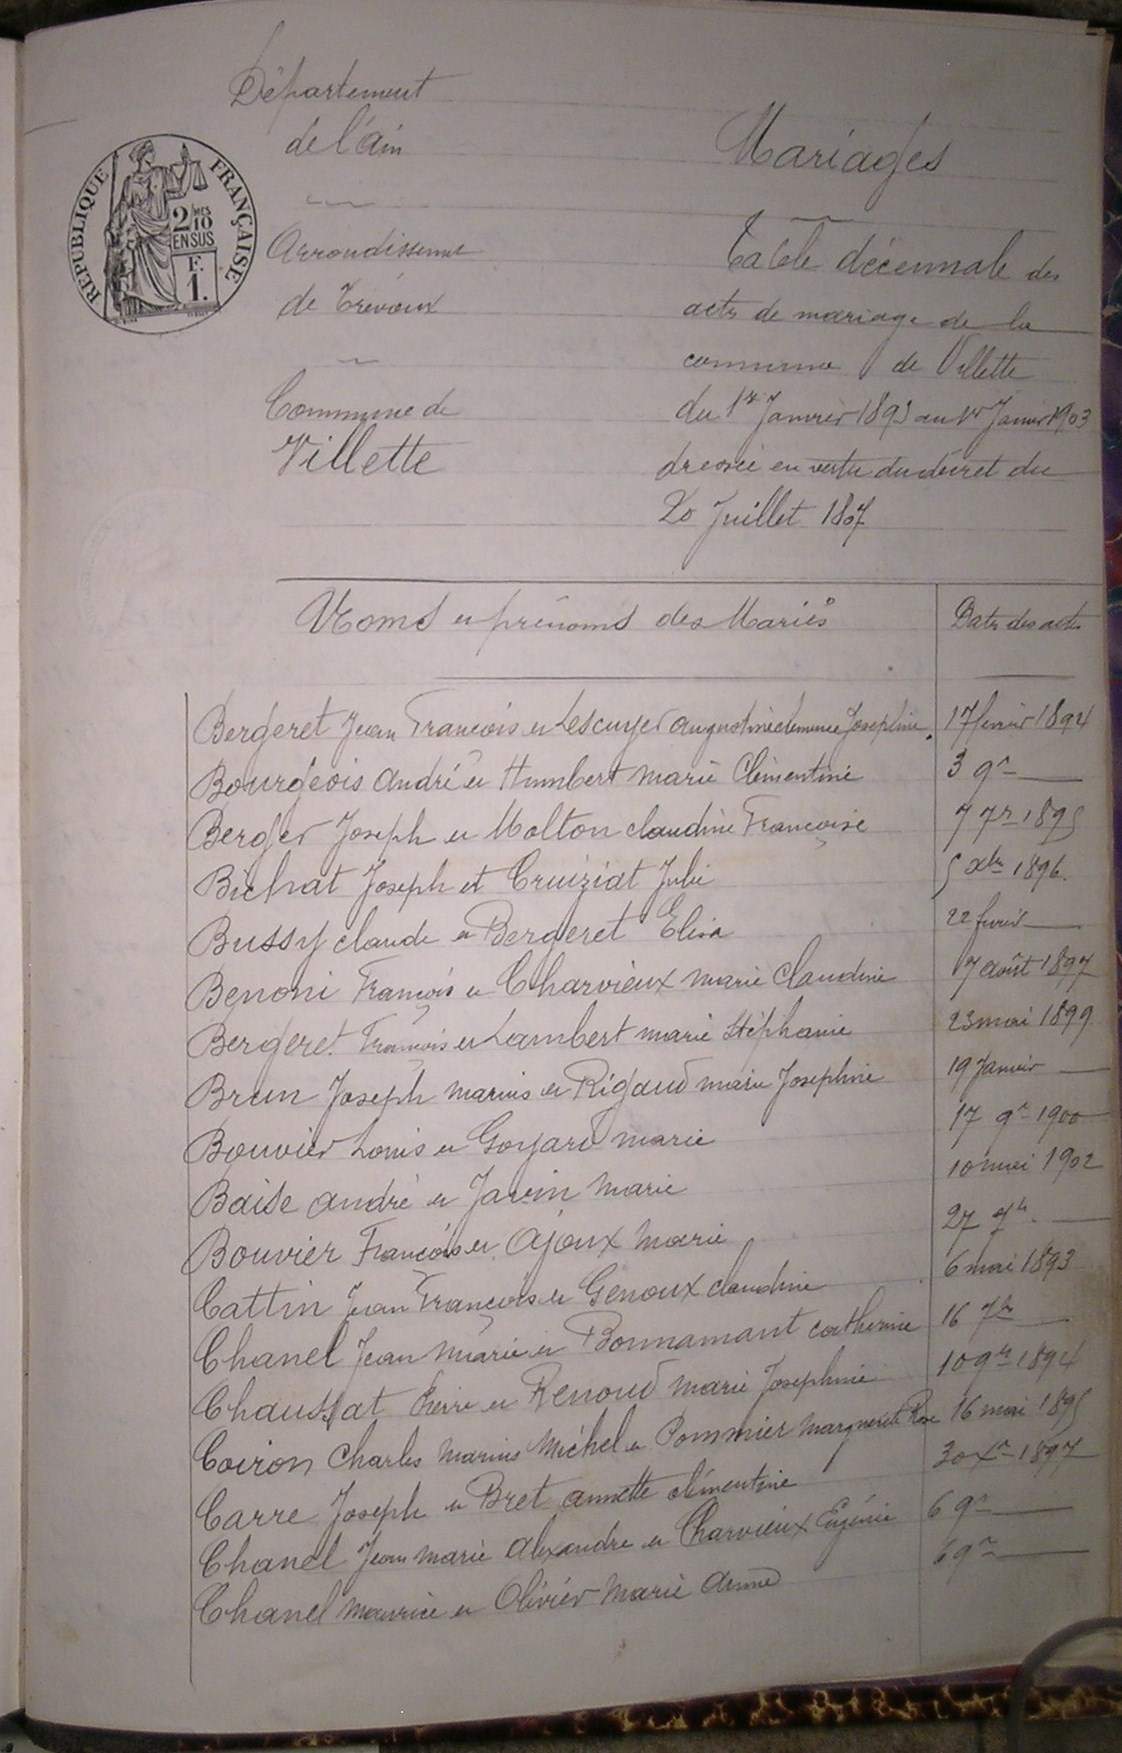 Département
de l'Ain
REPUBLIQUE FRANÇAISE
2/10 MES
EN SUS
F.
1.
Arrondissement
de Trévoux
Commune de
Villette
Mariages
Table décennale des
actes de mariage de la
commune de Villette
du 1er Janvier 1893 au 1er Janvier 1903
dressée en vertu du décret du
20 Juillet 1807
Noms et prénoms des Mariés
Dates des actes
Bergeret Jean François et Lescuyer Augustine Clémence Joséphine 17 février 1894
Bourgeois André et Humbert Marie Clémentine 3 9re
Berger Joseph et Molton Claudine Françoise 7 7re 1895
Bichat Joseph et Cruiziat Julie 5 Xbre 1896.
Bussy Claude et Bergeret Elisa 22 février
Benoni François et Charvieux Marie Claudine 17 août 1897
Bergeret François et Lambert Marie Stéphanie 23 mai 1899
Brun Joseph Marius et Rigaud Marie Joséphine 19 Janvier
Bouvier Louis et Goyard Marie 17 9re 1900
Baise André et Janin Marie 10 mai 1902
Bouvier François et Ajoux Marie 27 7bre
Cattin Jean François et Genoux Claudine 6 mai 1893
Chanel Jean Marie et Bonnamant Catherine 16 7bre
Chaussat Pierre et Renoud Marie Joséphine 10 9re 1894
Coiron Charles Marius Michel et Pommier Marguerite Rose 16 mai 1895
Carre Joseph et Bret Annette Clémentine 30 Xre 1897
Chanel Jean Marie Alexandre et Charvieux Eugénie 6 9re
Chanel Maurice et Olivier Marie 6 9re